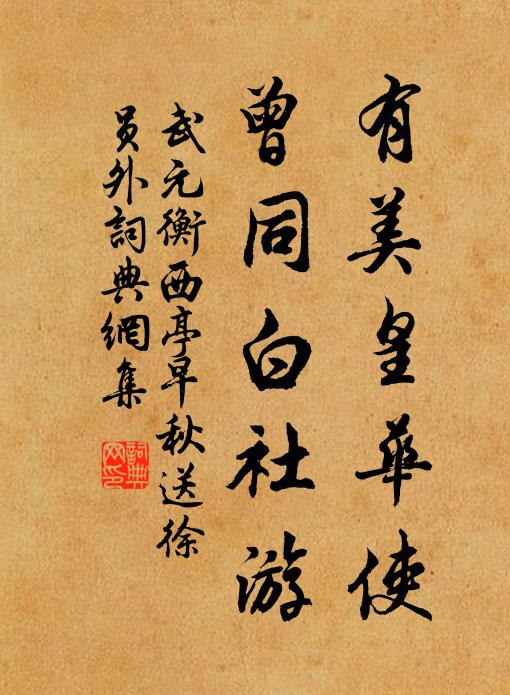 有美皇華使
曾同白社游
武元衡西亭早秋送徐
員外詞典網集
詞典
网印